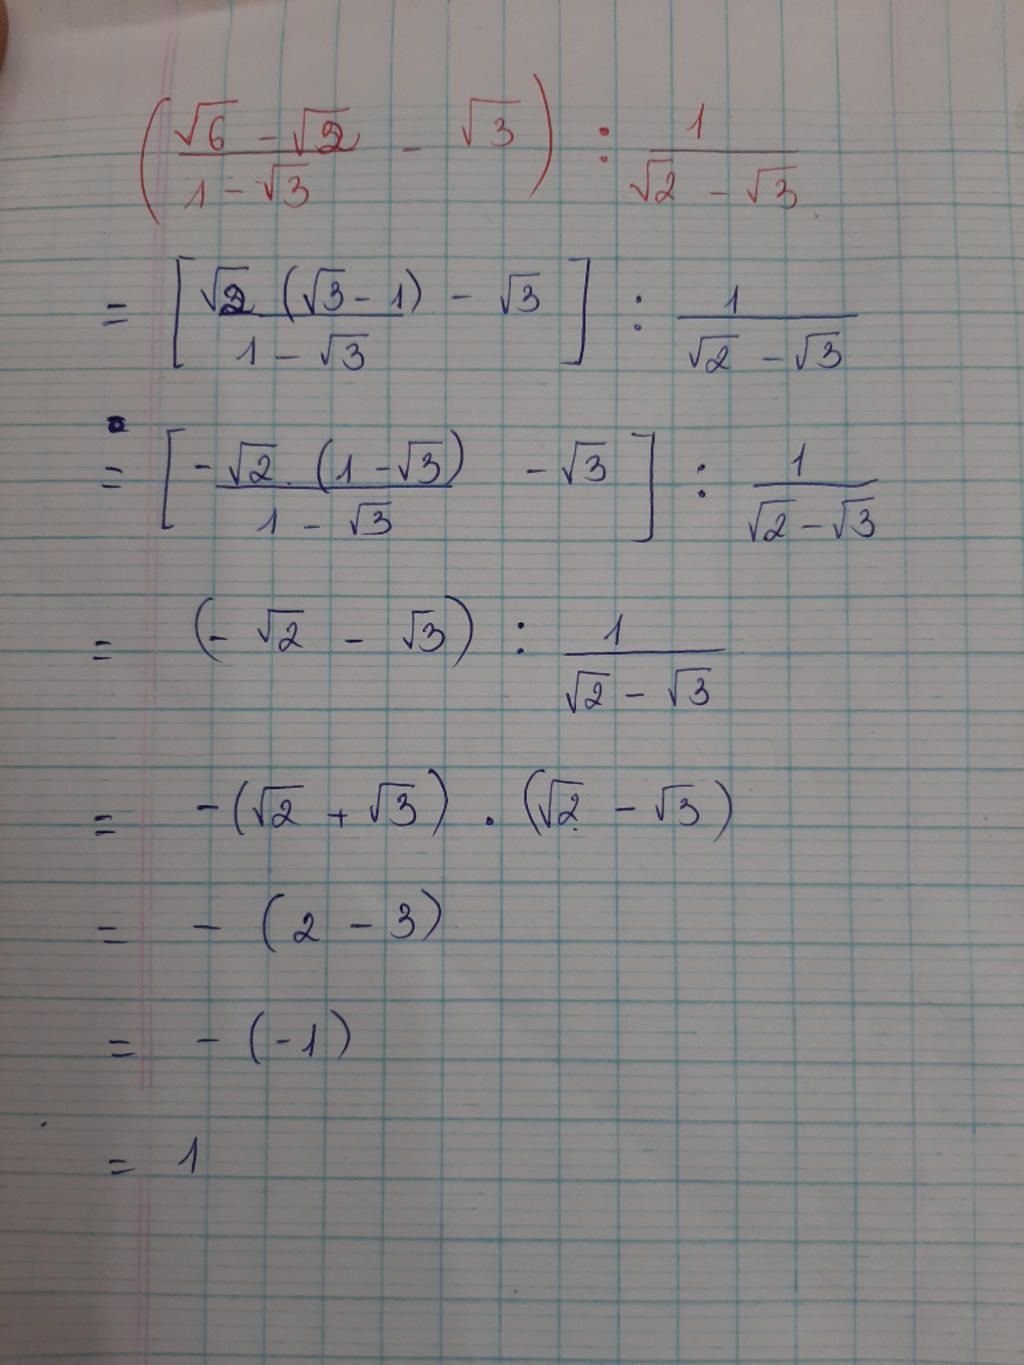 (√6 - √2 / 1 - √3 - √3) : 1 / √2 - √3
= [√2 (√3 - 1) / 1 - √3 - √3] : 1 / √2 - √3
= [- √2 . (1 - √3) / 1 - √3 - √3] : 1 / √2 - √3
= (- √2 - √3) : 1 / √2 - √3
= - (√2 + √3) . (√2 - √3)
= - (2 - 3)
= - (-1)
= 1